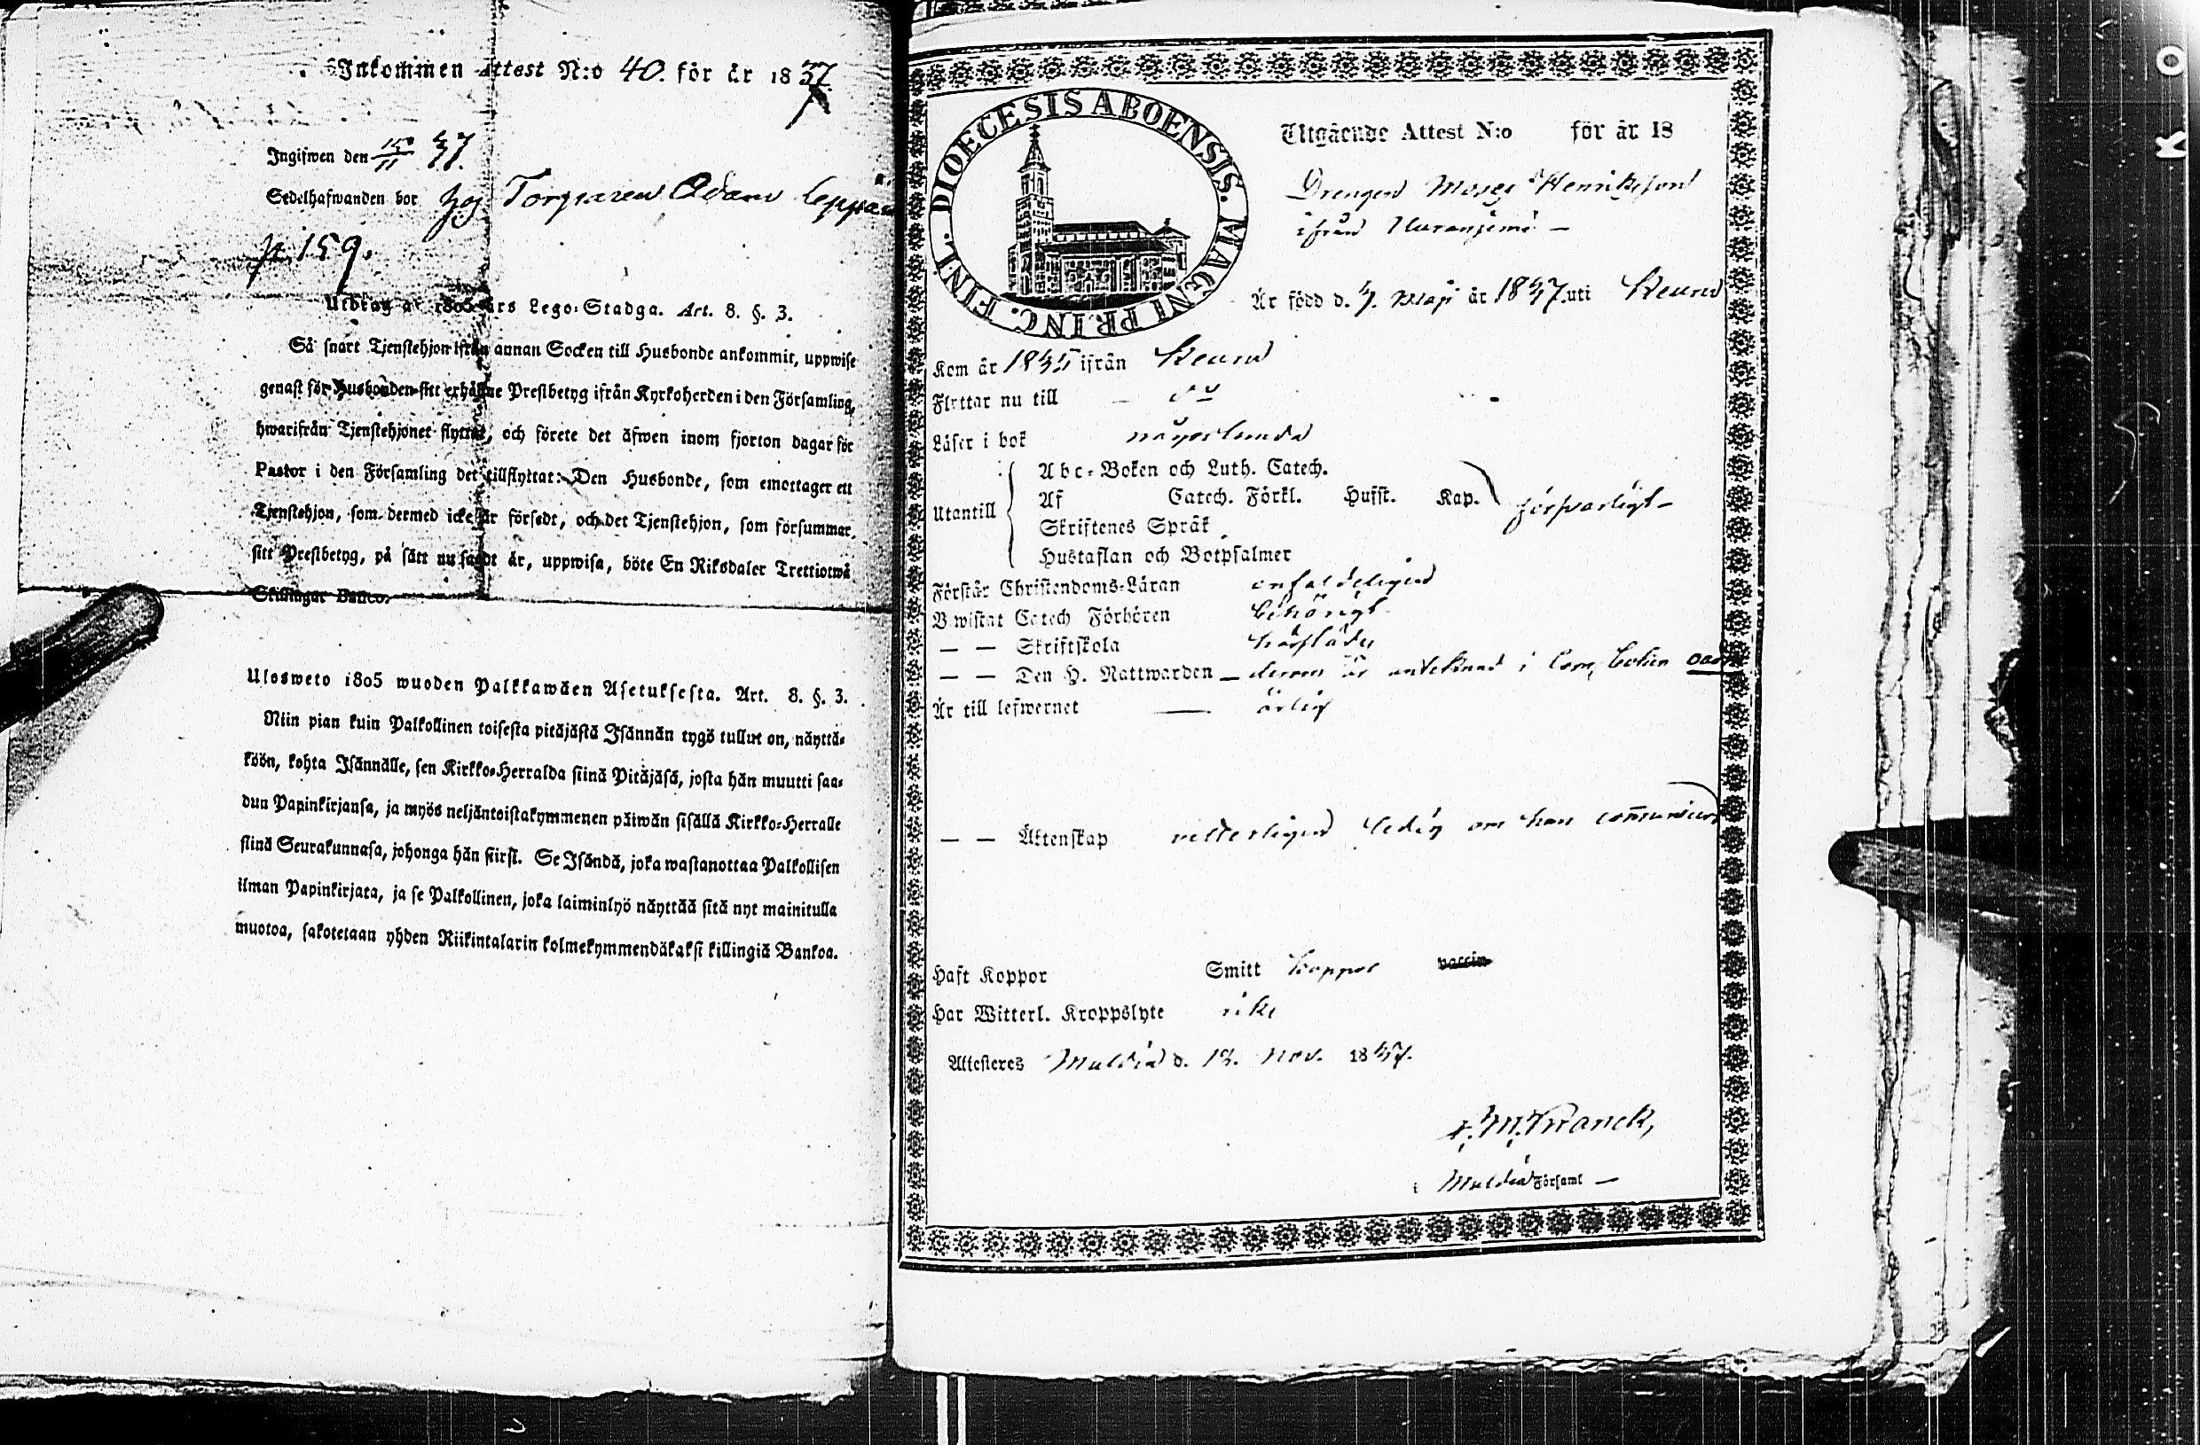 Inkommen Attest N:o 40. för år 1837
Ingifwen den 15/11 37.
Sedelhafwanden bor hos Torparen Adam
p. 159.
Utdrag af 1805 års Lego-Stadga. Art. 8. §. 3.
Så snart Tjenstehjon ifrån annan Socken till Husbonde ankommit, uppwise
genast för Husbonden sitt erhållne Prestbetyg ifrån Kyrkoherden i den Församling,
hwarifrån Tjenstehjonet flyttat, och förete det äfwen inom fjorton dagar för
Pastor i den Församling det tillflyttat: Den Husbonde, som emottager ett
Tjenstehjon, som dermed icke är försedt, och det Tjenstehjon, som försummar
sitt Prestbetyg, på sätt nu sagdt är, uppwisa, böte En Riksdaler Trettiotwå
Skillingar Banco.
Ulosweto 1805 wuoden Palkkawäen Asetuksesta. Art. 8. §. 3.
Niin pian kuin Palkollinen toisesta pitäjästä Isännän tygö tullut on, näyttä-
köön, kohta Isännälle, sen Kirkko-Herralda siinä Pitäjäsä, josta hän muutti saa-
dun Papinkirjansa, ja myös neljäntoistakymmenen päiwän sisällä Kirkko-Herralle
siinä Seurakunnasa, johonga hän siirst. Se Isändä, joka wastanottaa Palkollisen
ilman Papinkirjata, ja se Palkollinen, joka laiminlyö näyttää sitä nyt mainitulla
muotoa, sakotetaan yhden Riikintalarin kolmekymmendäkaksi killingiä Bankoa.
DIOECESIS ABOENSIS. MAGNI PR.INC. FINL.
Utgående Attest N:o för år 18
Drengen Moses Henriksson
ifrån
Är född d. Maji år 18 uti Keuru
Kom år 1835 ifrån Keuru
Flyttar nu till do
Läser i bok någorlunda
Utantill
Abc-Boken och Luth. Catech.
Af Catech. Förkl. Hufst. Kap. försvarligt
Skriftenes Språk
Hustaflan och Botpsalmer
Förstår Christendoms-Läran enfaldeligen
Bewistat Catech Förhören behörigt
— — Skriftskola
— — Den H. Nattwarden — derom är antecknad i Com. boken
Är till lefwernet — ärlig
— — Äktenskap vetterligen ledig om han
Haft Koppor Smitt koppor vaccin
Har Witterl. Kroppslyte icke
Attesteres Muldia d. 12. Nov. 1837.
F. M. Franck,
i Muldia Församl —